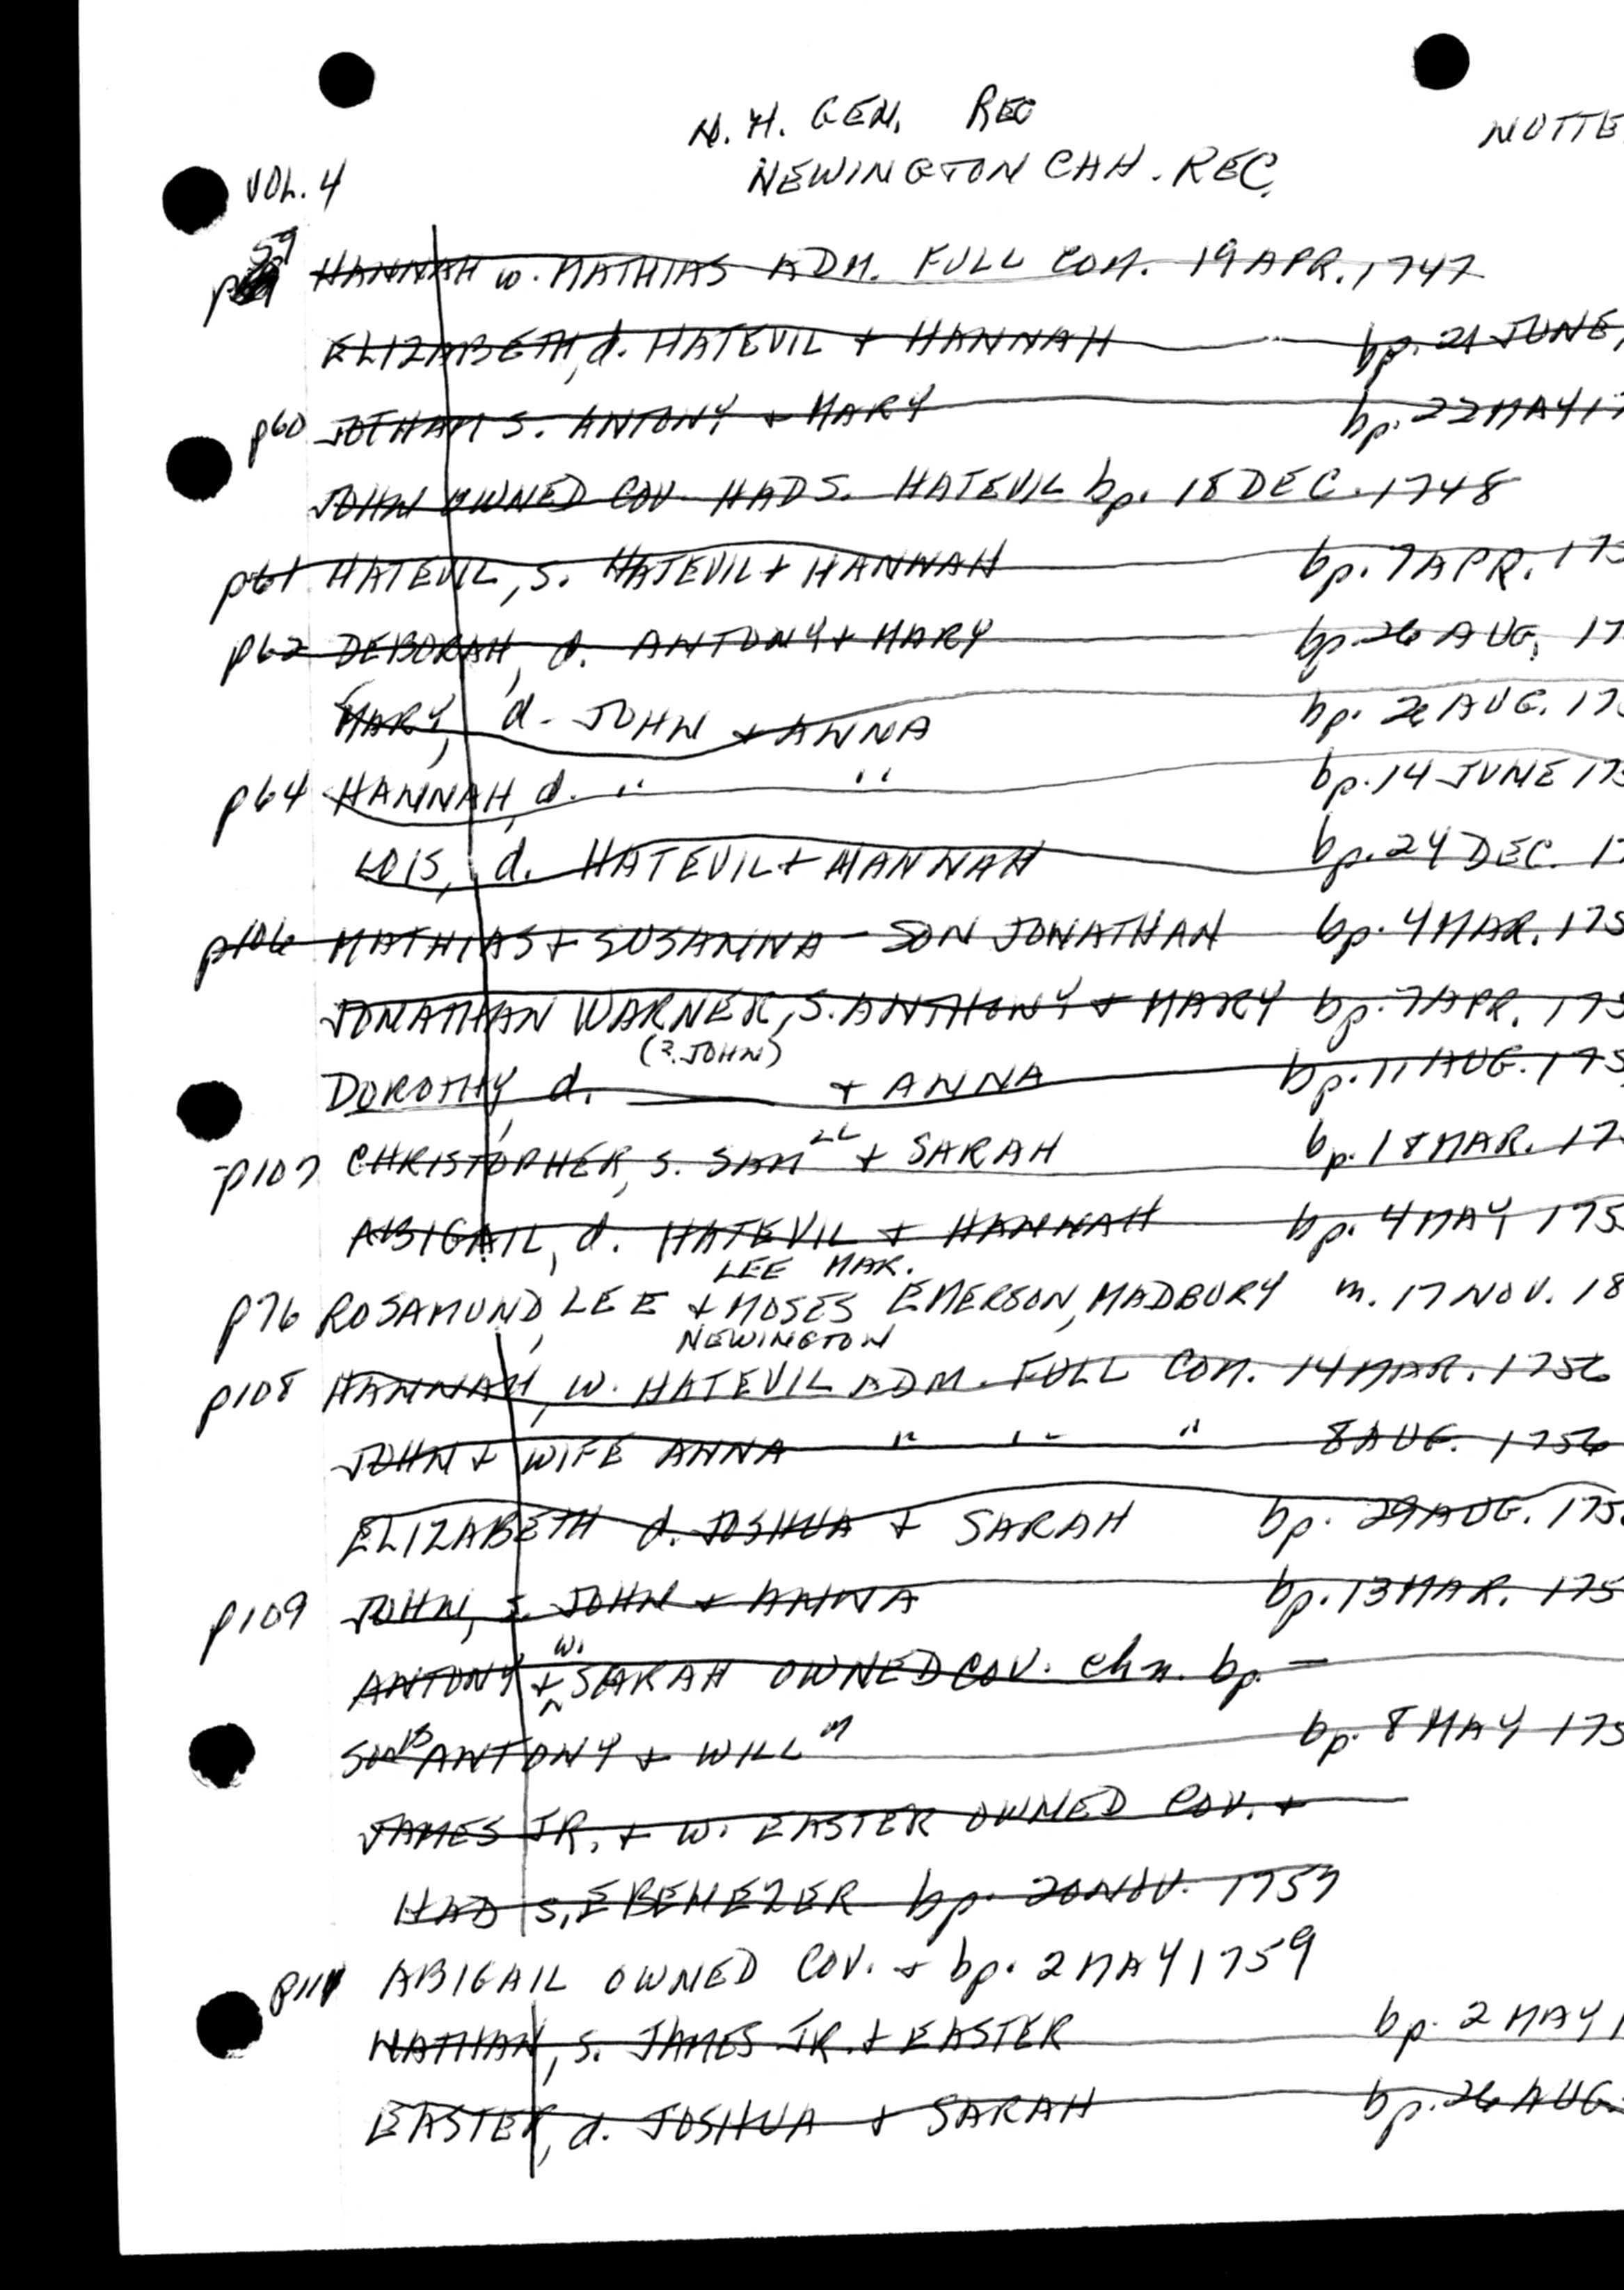 N. H. GEN. REC
NUTTE
VOL. 4
NEWINGTON CHH. REC.
p59 HANNAH w. MATHIAS ADM. FULL COM. 19 APR. 1747
ELIZABETH, d. HATEVIL + HANNAH bp. 21 JUNE,
p60 JOTHAM S. ANTONY + MARY bp. 22 MAY 17
JOHN OWNED COV. HAD S. HATEVIL bp. 18 DEC. 1748
p61 HATEVIL, S. HATEVIL + HANNAH bp. 7 APR. 175
p62 DEBORAH, d. ANTONY + MARY bp. 26 AUG. 17
MARY, d. JOHN + ANNA bp. 26 AUG. 175
p64 HANNAH, d. " " bp. 14 JUNE 175
LOIS, d. HATEVIL + HANNAH bp. 24 DEC. 17
p106 MATHIAS + SUSANNA - SON JONATHAN bp. 4 MAR. 175
JONATHAN WARNER, S. ANTHONY + MARY bp. 7 APR. 175
(?. JOHN)
DOROTHY, d. ____ + ANNA bp. 11 AUG. 175
p107 CHRISTOPHER, S. SAMLL + SARAH bp. 18 MAR. 17
ABIGAIL, d. HATEVIL + HANNAH bp. 4 MAY 175
LEE MAR.
p76 ROSAMUND, LEE + MOSES EMERSON, MADBURY m. 17 NOV. 18
NEWINGTON
p108 HANNAH, W. HATEVIL ADM. FULL COM. 14 MAR. 1756
JOHN + WIFE ANNA " " " 8 AUG. 1756
ELIZABETH d. JOSHUA + SARAH bp. 29 AUG. 175
p109 JOHN, S. JOHN + ANNA bp. 13 MAR. 175
w.
ANTONY + SARAH OWNED COV. chn. bp. —
SONS ANTONY + WILLM bp. 8 MAY 175
JAMES JR. + W. EASTER OWNED COV. +
HAD S. EBENEZER bp. 20 NOV. 1757
p111 ABIGAIL OWNED COV. + bp. 2 MAY 1759
NATHAN, S. JAMES JR. + EASTER bp. 2 MAY 1
EASTER, d. JOSHUA + SARAH bp. 26 AUG.